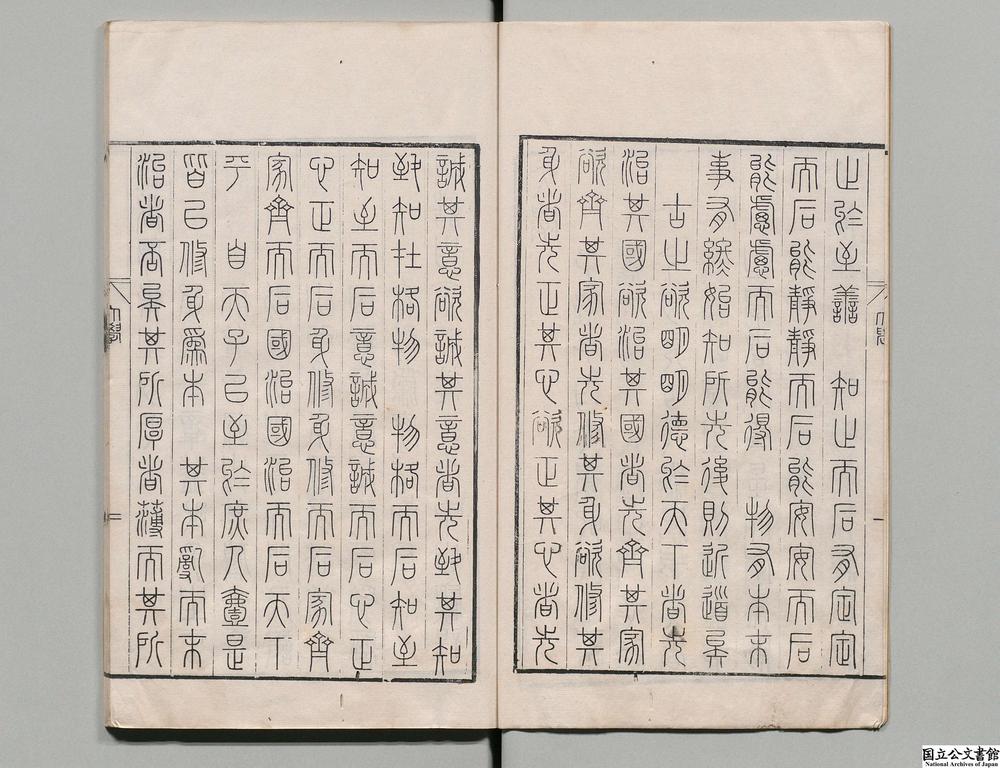 止於至善　知止而后有定定
而后能靜靜而后能安安而后
能慮慮而后能得　物有本末
事有終始知所先後則近道矣
古之欲明明德於天下者先
治其國欲治其國者先齊其家
欲齊其家者先修其身欲修其
身者先正其心欲正其心者先
誠其意欲誠其意者先致其知
致知在格物　物格而后知至
知至而后意誠意誠而后心正
心正而后身修身修而后家齊
家齊而后國治國治而后天下
平　自天子以至於庶人壹是
皆以修身爲本　其本亂而末
治者否矣其所厚者薄而其所
大學
二
国立公文書館
National Archives of Japan